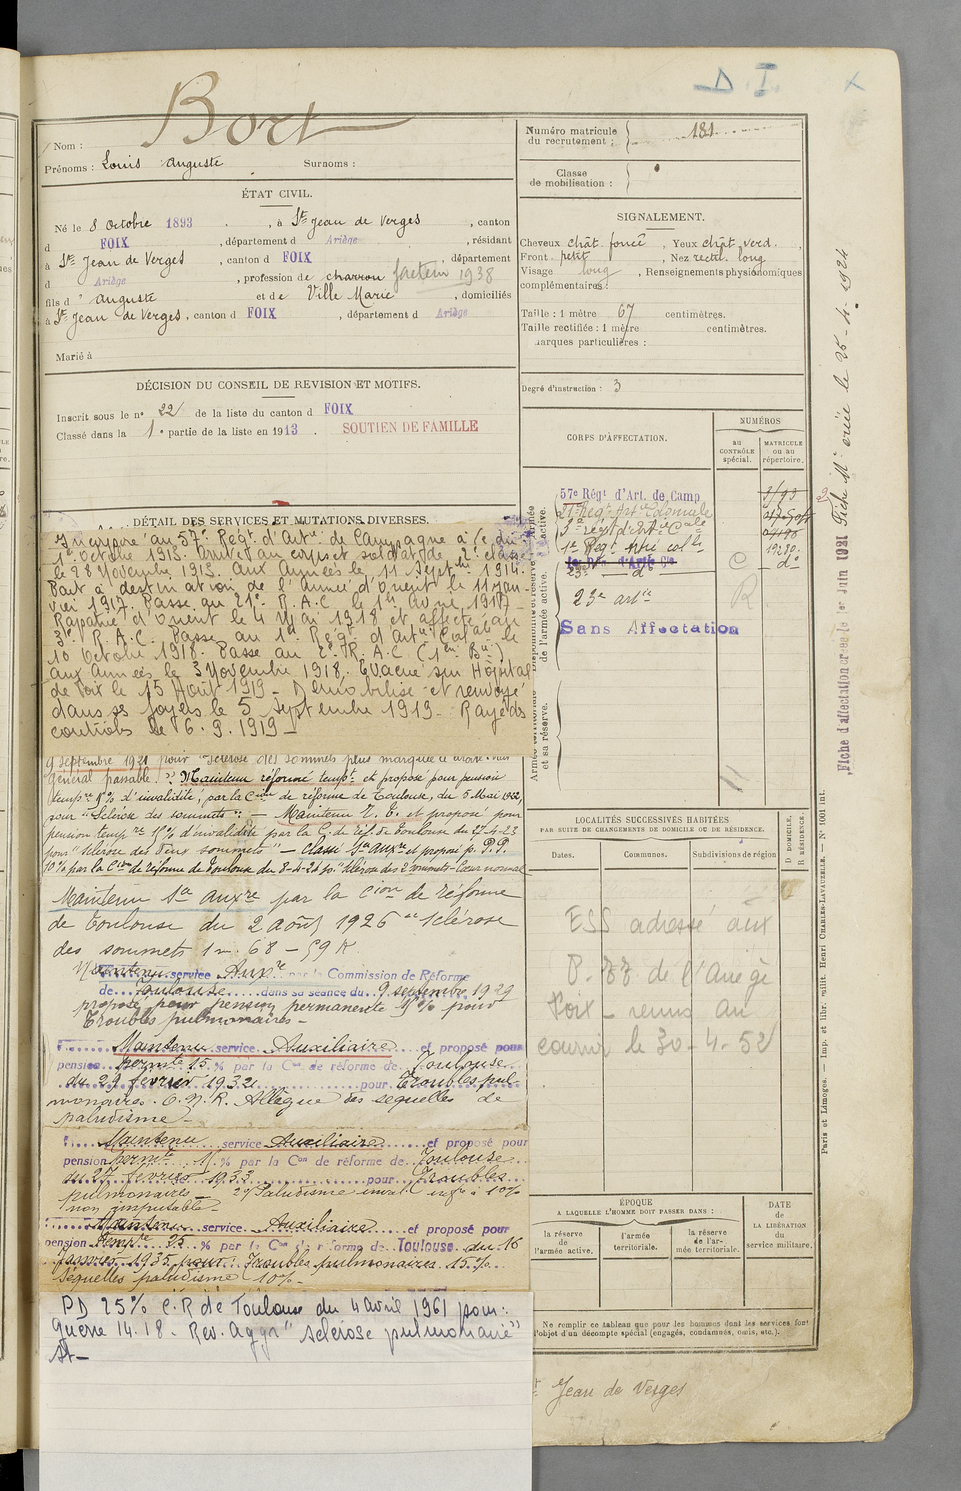 D. I. X
Bort
Nom :
Prénoms : Louis Auguste Surnoms :
ÉTAT CIVIL.
Né le 8 Octobre 1893 , à St Jean de Verges , canton
d FOIX , département d Ariège , résidant
à St Jean de Verges , canton d FOIX , département
d Ariège , profession de charron facteur 1938
fils d' Auguste et de Ville Marie , domiciliés
à St Jean de Verges , canton d FOIX , département d Ariège
Marié à
DÉCISION DU CONSEIL DE REVISION ET MOTIFS.
Inscrit sous le n° 22 de la liste du canton d FOIX
Classé dans la 1e partie de la liste en 1913 . SOUTIEN DE FAMILLE
DÉTAIL DES SERVICES ET MUTATIONS DIVERSES.
Incorporé au 57e Régt. d'Artie de Campagne à Cr du
1er Octobre 1913. Arrivé au corps et soldat de 2e classe
le 28 Novembre 1913. Aux Armées le 11 Septbre 1914.
Part à destination de l'Armée d'Orient le 11 jan-
vier 1917. Passe au 21e R.A.C. le 1er Avril 1917
Rapatrié d'Orient le 4 Mai 1918 et affecté au
3e R.A.C. Passe au 1er Régt d'Artie Colale le
10 Octobre 1918. Passe au 2e R.A.C
aux Armées le 3 Novembre 1918. Evacué sur Hôpital
de Foix le 15 Août 1919 - Démobilisé et renvoyé
dans ses foyers le 5 septembre 1919 - Rayé des
contrôles le 6.9.1919 -
9 septembre 1921 pour "sclérose des sommets plus marquée à droite
général passable." Maintenu réformé tempre et proposé pour pension
tempre % d'invalidité, par la Cion de réforme de Toulouse, du 5 Mai 1922,
pour "Sclérose des sommets" - Maintenu R.T. et proposé pour
pension tempre 10% d'invalidité par la C. de réf. de Toulouse du 27-4-23
pour "sclérose des deux sommets" - classé Sce auxre et proposé p. P.P.
10% par la Cion de réforme de Toulouse du 8-4-24 pr "sclérose des 2 sommets - Cœur normal
Maintenu Sce auxre par la Cion de réforme
de Toulouse du 2 août 1926 "sclérose
des sommets 1m.68 - 59 K
Maintenu service Auxre par la Commission de Réforme
de Toulouse dans sa séance du 9 septembre 1929
proposé pour pension permanente % pour
Troubles pulmonaires -
Maintenu service Auxiliaire et proposé pour
pension permte 15 % par la Con de réforme de Toulouse
du 29 février 1932 pour Troubles pul-
monaires. Allègue des séquelles de
paludisme -
Maintenu service Auxiliaire et proposé pour
pension permte % par la Con de réforme de Toulouse
du 27 février 1933 pour Troubles
pulmonaires - 2° Paludisme inval. infre à 10%
non imputable -
Maintenu service Auxiliaire et proposé pour
pension tempre 25 % par la Con de réforme de Toulouse du 16
janvier 1935 pour : Troubles pulmonaires 15%
séquelles paludisme 10% -
PD 25% C.R de Toulouse du 4 avril 1961 pour :
guerre 14.18 - Rev. Aggr "sclérose pulmonaire"
St -
Numéro matricule
du recrutement : 181
Classe
de mobilisation :
SIGNALEMENT.
Cheveux chât. foncé , Yeux chât. verd. ,
Front petit , Nez rectil. long
Visage long , Renseignements physionomiques
complémentaires :
Taille : 1 mètre 67 centimètres.
Taille rectifiée : 1 mètre centimètres.
Marques particulières :
Degré d'instruction : 3
CORPS D'AFFECTATION.
NUMÉROS
au
CONTRÔLE
spécial.
MATRICULE
ou au
répertoire.
Armée active.
Disponibilité et réserve
de l'armée active.
Armée territoriale
et sa réserve.
57e Régt d'Art. de Camp
21e Régt Artie Coloniale
3e Régt d'Art. Cale
1er Régt Artie colle
23e d° C d°
23e artie R
Sans Affectation
LOCALITÉS SUCCESSIVES HABITÉES
PAR SUITE DE CHANGEMENTS DE DOMICILE OU DE RÉSIDENCE.
Dates. Communes. Subdivisions de région
D DOMICILE,
R RÉSIDENCE.
ESS adressé aux
P. ZZ de l'Ariège
Foix - remis au
courrier le 30-4-52
ÉPOQUE
A LAQUELLE L'HOMME DOIT PASSER DANS :
la réserve
de
l'armée active.
l'armée
territoriale.
la réserve
de l'ar-
mée territoriale.
DATE
de
LA LIBÉRATION
du
service militaire.
Ne remplir ce tableau que pour les hommes dont les services font
l'objet d'un décompte spécial (engagés, condamnés, omis, etc.).
St Jean de Verges
Fiche d'affectation créée le 1er Juin 1921 Fiche Mle créée le 25-4-1924
Paris et Limoges. — Imp. et libr. milit. Henri CHARLES-LAVAUZELLE. — N° 1001 int.